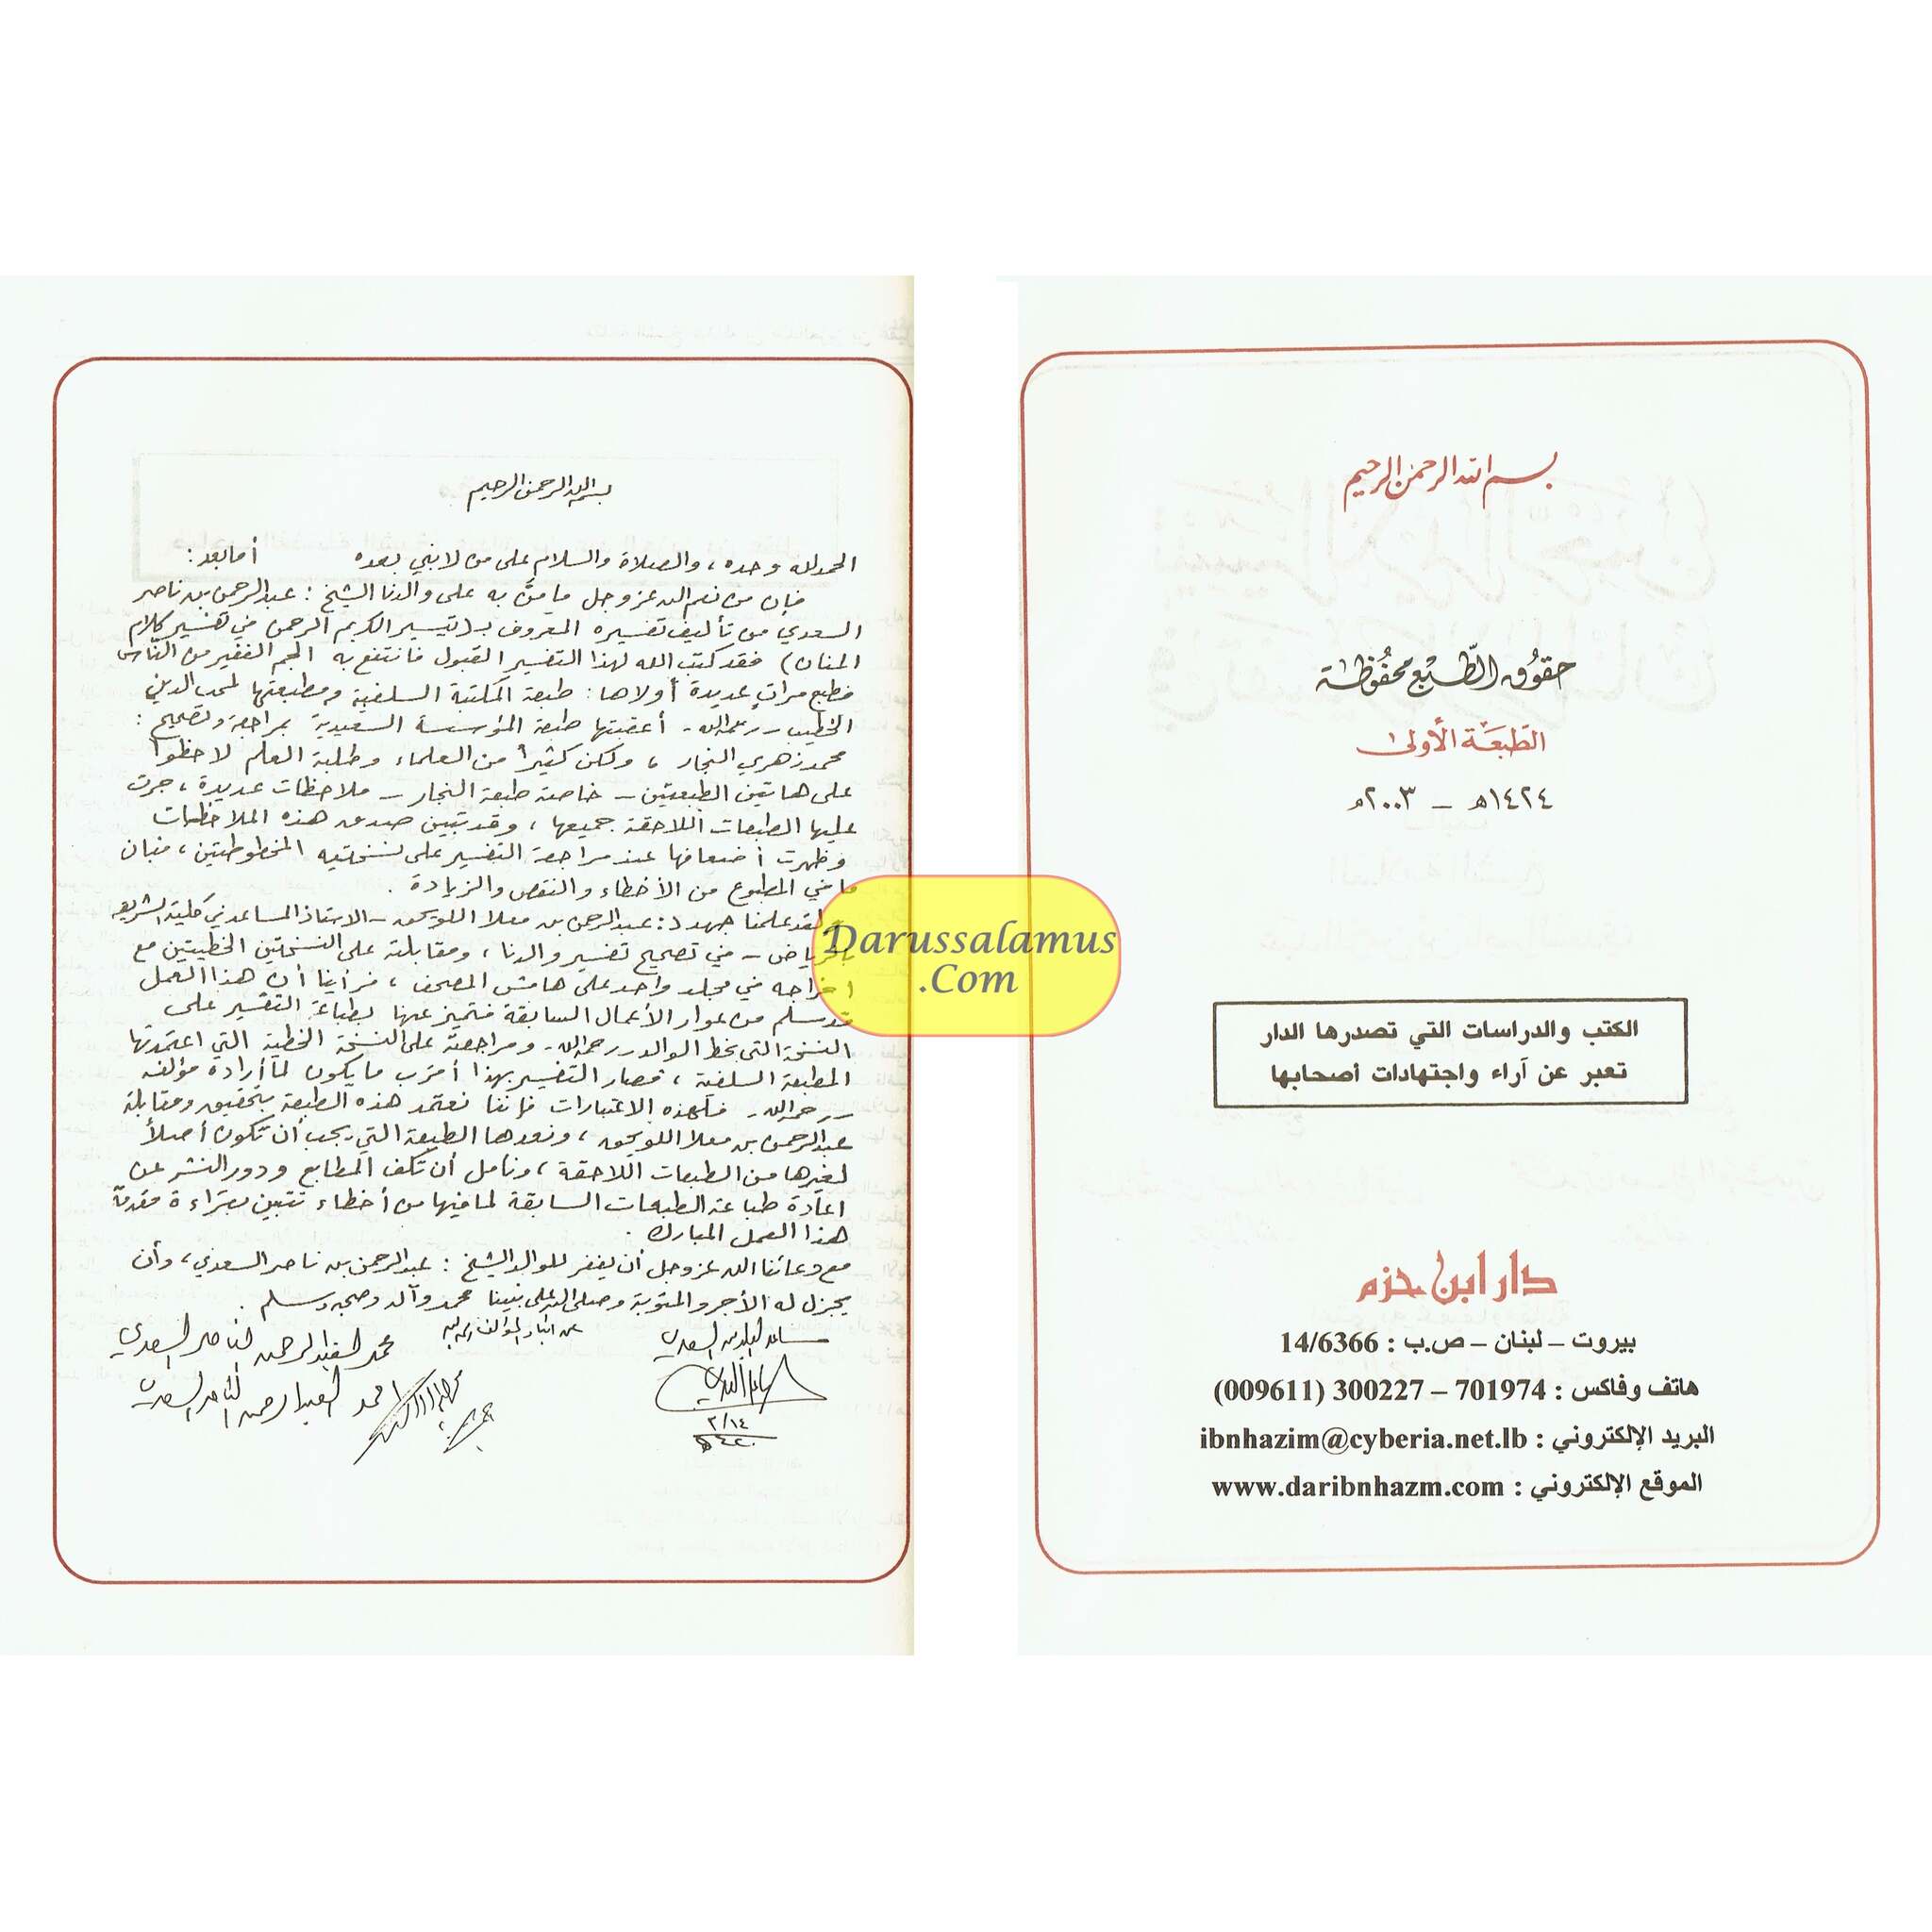 بسم الله الرحمن الرحيم
حقوق الطبع محفوظة
الطبعة الأولى
١٤٢٤هـ – ٢٠٠٣م
الكتب والدراسات التي تصدرها الدار
تعبر عن آراء واجتهادات أصحابها
دار ابن حزم
بيروت – لبنان – ص.ب : 14/6366
هاتف وفاكس : 701974 – 300227 (009611)
البريد الإلكتروني : ibnhazim@cyberia.net.lb
الموقع الإلكتروني : www.daribnhazm.com
بسم الله الرحمن الرحيم
الحمد لله وحده ، والصلاة والسلام على من لا نبي بعده أما بعد :
فإن من نعم الله عز وجل ما منَّ به على والدنا الشيخ : عبدالرحمن بن ناصر
السعدي من تأليف تفسيره المعروف بـ (تيسير الكريم الرحمن في تفسير كلام
المنان) فقد كتب الله لهذا التفسير القبول فانتفع به الجم الغفير من الناس
فطبع مراتٍ عديدة أولاها : طبعة المكتبة السلفية ومطبعتها لمحب الدين
الخطيب - رحمه الله - أعقبتها طبعة المؤسسة السعيدية بمراجعة وتصحيح :
محمد زهري النجار ، ولكن كثيراً من العلماء وطلبة العلم لاحظوا
على هاتين الطبعتين – خاصة طبعة النجار – ملاحظات عديدة ، جرت
عليها الطبعات اللاحقة جميعها ، وقد تبين صدق هذه الملاحظات
وظهرت أضعافها عند مراجعة التفسير على نسختيه المخطوطتين ، فبان
ما في المطبوع من الأخطاء والنقص والزيادة .
ولقد علمنا جهود د : عبدالرحمن بن معلا اللويحق – الاستاذ المساعد في كلية الشريعة
بالرياض – في تصحيح تفسير والدنا ، ومقابلته على النسختين الخطيتين مع
اخراجه في مجلد واحد على هامش المصحف ، فرأينا أن هذا العمل
قد سلم من عوار الأعمال السابقة فتميز عنها بطباعة التفسير على
النسخة التي بخط الوالد - رحمه الله - ومراجعته على النسخة الخطية التي اعتمدتها
المطبعة السلفية ، فصار التفسير بهذا أقرب ما يكون لما أراده مؤلفه
- رحمه الله - فلهذه الاعتبارات فإننا نعتمد هذه الطبعة بتحقيق ومقابلة
عبدالرحمن بن معلا اللويحق ، ونعدها الطبعة التي يجب أن تكون أصلاً
لغيرها من الطبعات اللاحقة ، ونأمل أن تكف المطابع ودور النشر عن
اعادة طباعة الطبعات السابقة لما فيها من أخطاء تتبين بقراءة مقدمة
هذا العمل المبارك .
مع دعائنا الله عز وجل أن يغفر للوالد الشيخ : عبدالرحمن بن ناصر السعدي ، وأن
يجزل له الأجر والمثوبة وصلى الله على نبينا محمد وآله وصحبه وسلم .
محمد العبدالرحمن الناصر السعدي
احمد العبدالرحمن الناصر السعدي
Darussalamus
.Com